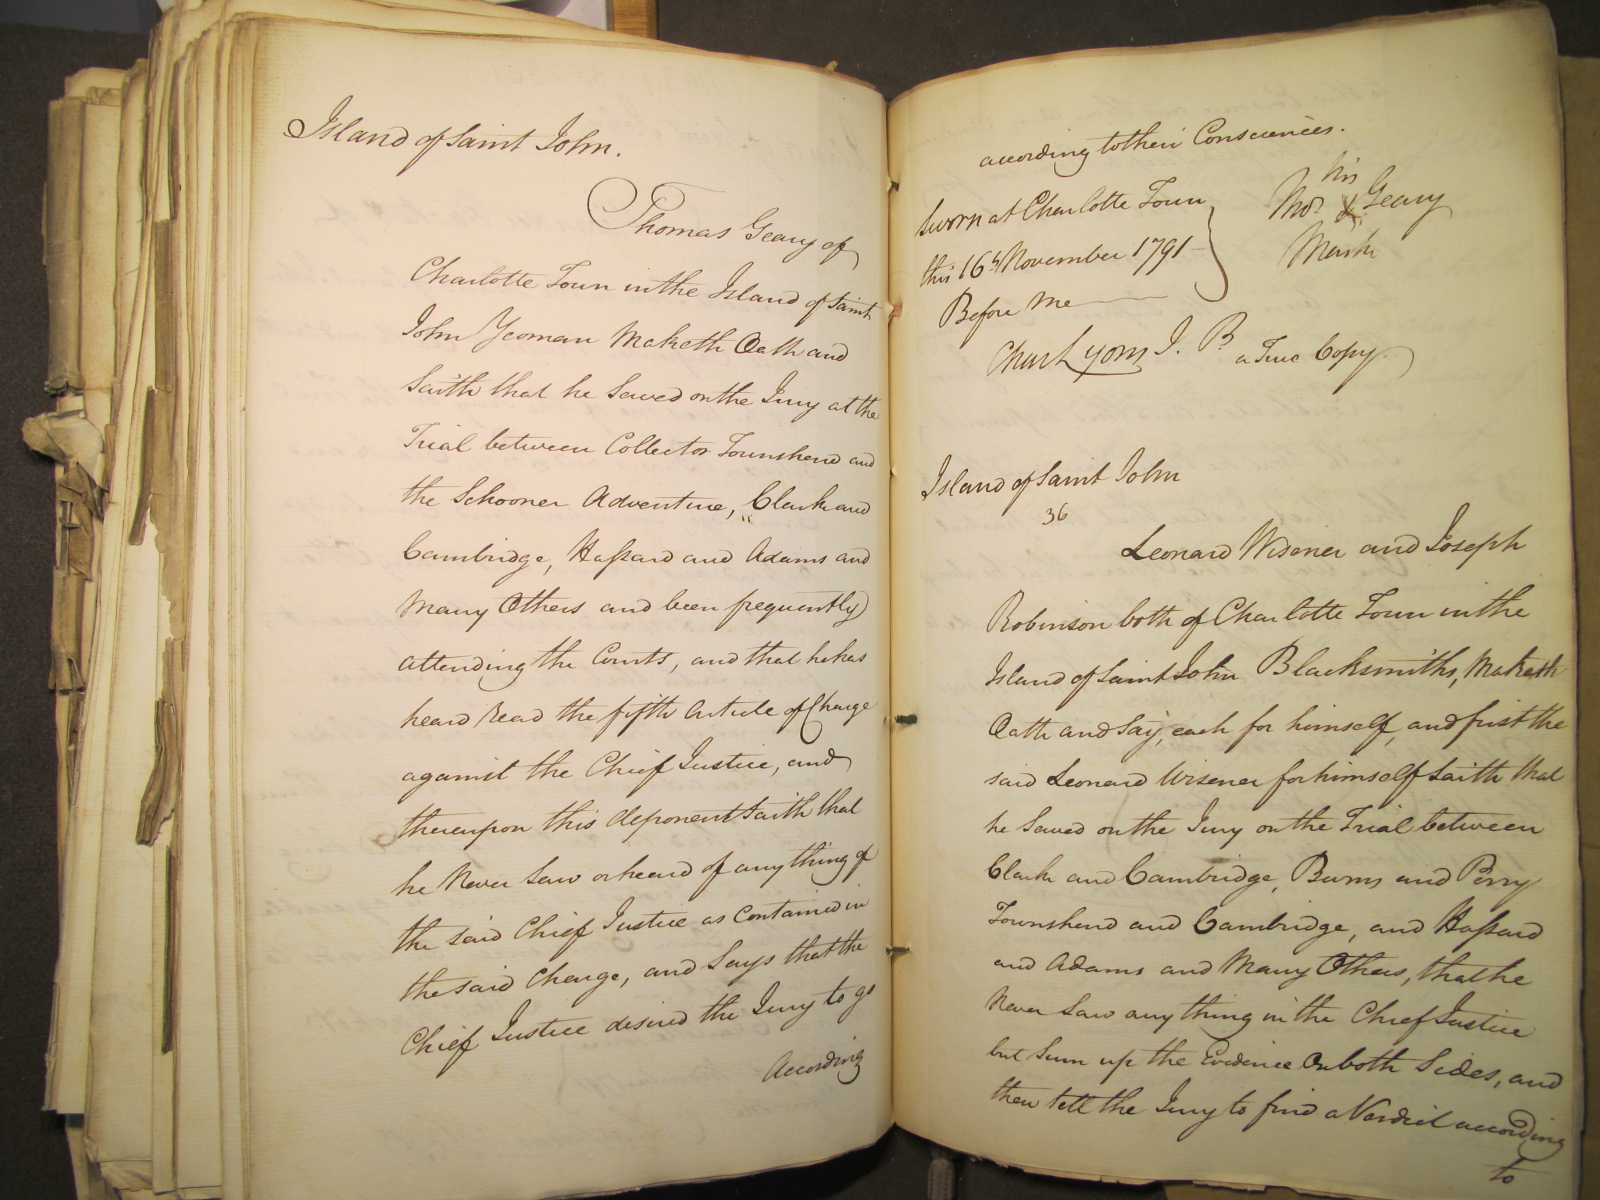 Island of Saint John.
Thomas Geary of
Charlotte Town in the Island of Saint
John Yeoman Maketh Oath and
Saith that he Served on the Jury at the
Trial between Collector Townshend and
the Schooner Adventure, Clark and
Cambridge, Hassard and Adams and
Many Others and been frequently
attending the Courts, and that he has
heard Read the fifth Article of Charge
against the Chief Justice, and
thereupon this deponent Saith that
he Never Saw or heard of any thing of
the said Chief Justice as Contained in
the said Charge, and Says that the
Chief Justice desired the Jury to go
According
according to their Consciences.
Sworn at Charlotte Town
this 16th November 1791
Before Me
his
Thos X Geary
Mark
Chas Lyons J. P. a True Copy.
Island of Saint John
36
Leonard Wisener and Joseph
Robinson both of Charlotte Town in the
Island of Saint John Blacksmiths, Maketh
Oath and Say, each for himself, and first the
said Leonard Wisener for himself Saith that
he Served on the Jury on the Trial between
Clark and Cambridge, Burns and Perry
Townshend and Cambridge, and Hassard
and Adams and Many Others, that he
Never Saw any thing in the Chief Justice
but Sum up the Evidence On both Sides, and
then tell the Jury to find a Verdict according
to